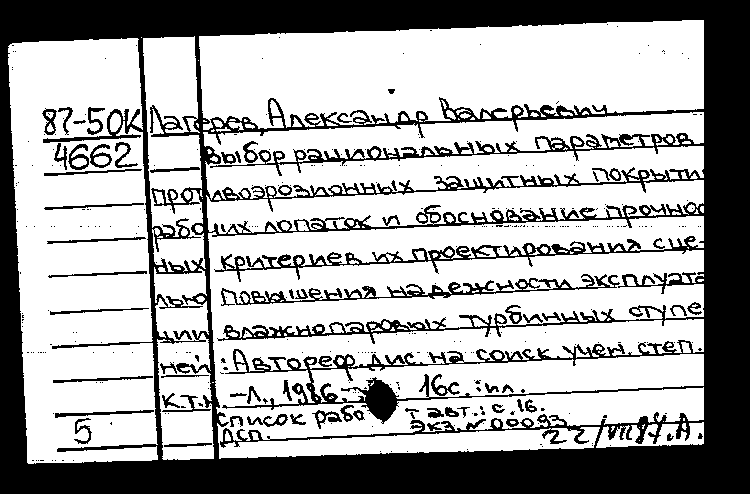 87-50К Лагерев, Александр Валерьевич.
4662 Выбор рациональных параметров
противоэрозионных защитных покрыти
рабочих лопаток и обоснование прочнос
ных критериев их проектирования с це-
лью повышения надежности эксплуата
ции влажнопаровых турбинных ступе
ней : Автореф. дис. на соиск. учен. степ.
к.т.н. – Л., 1986. – 16с. : ил.
Список рабо т авт.: с.16.
5 Дсп. Экз. № 00093
22/VII 87. А.